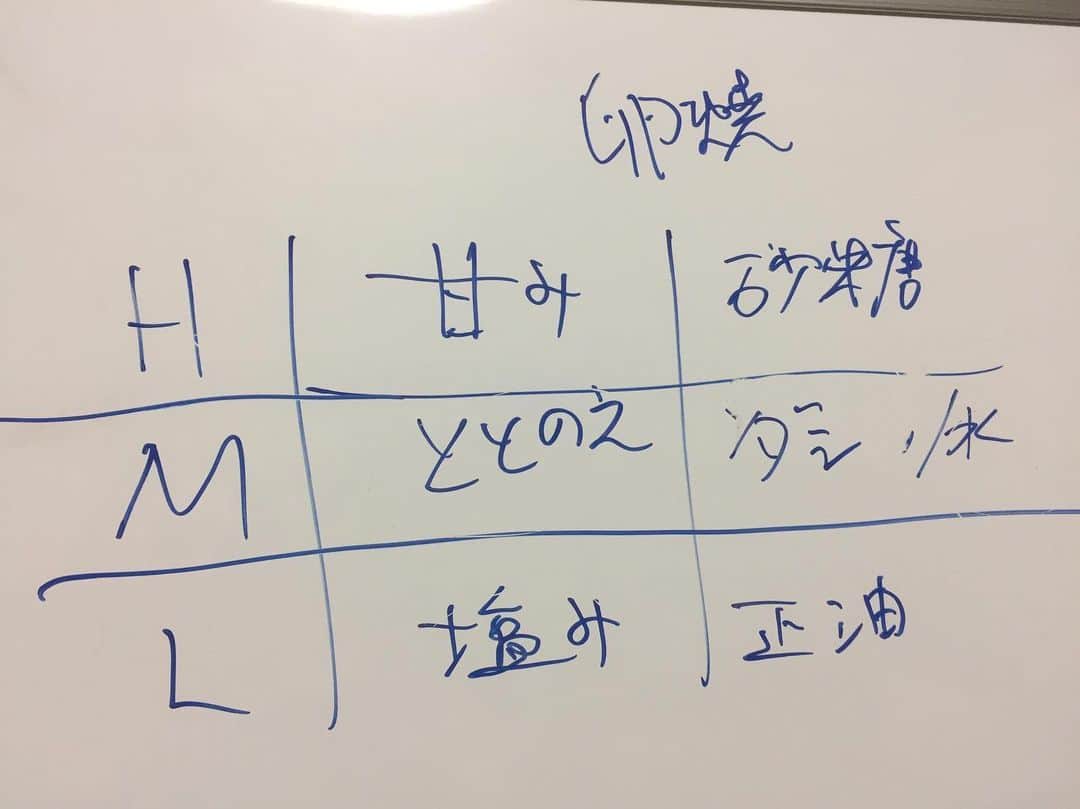 卵焼
H 甘み 砂糖
M ととのえ ダシ / 水
L 塩み 正油